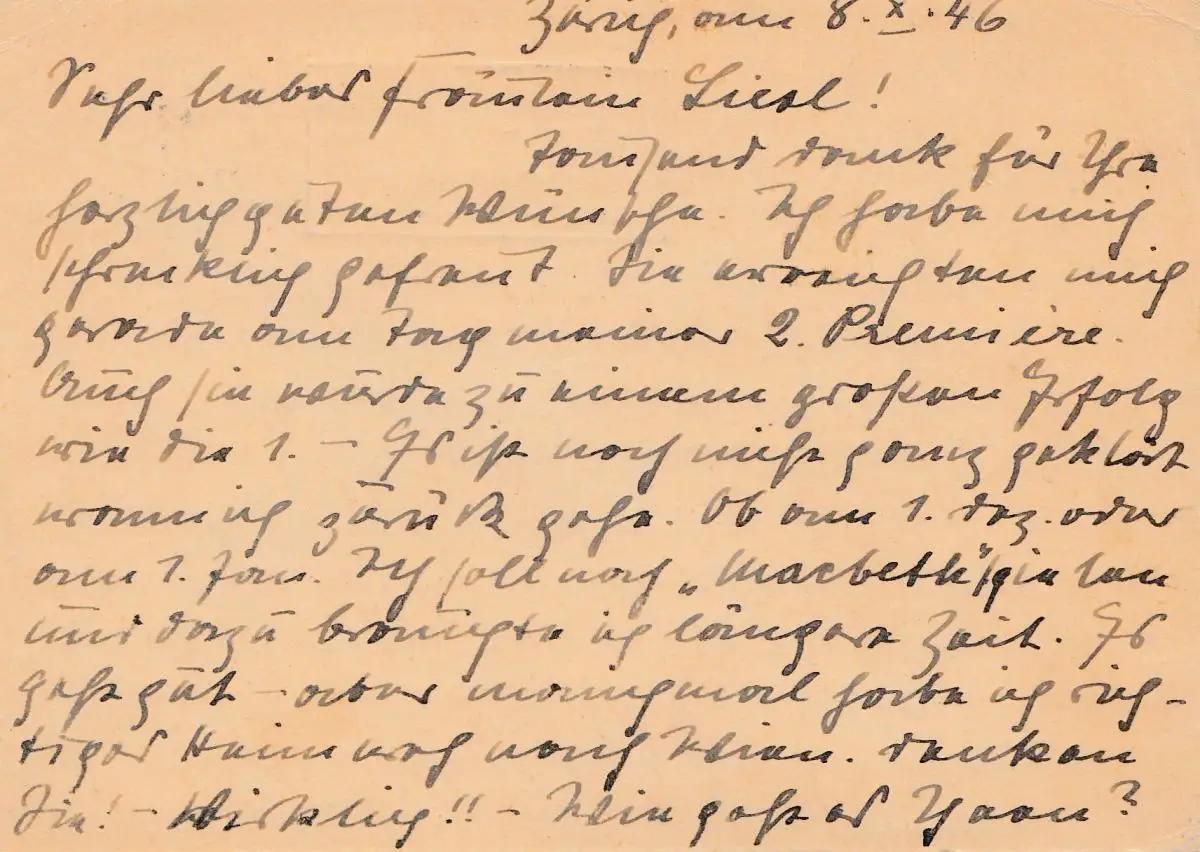 Zürich, am 8.X.46
Sehr liebes Fräulein Liesl!
Tausend Dank für Ihre
herzlich guten Wünsche. Ich habe mich
schrecklich gefreut. Sie erreichten mich
gerade am Tag meiner 2. Premiere.
Auch sie wurde zu einem großen Erfolg
wie die 1. – Es ist noch nicht ganz geklärt
wann ich zurück gehe. Ob am 1. Dez. oder
am 1. Jan. Ich soll noch „Macbeth" spielen
und dazu brauchte ich längere Zeit. Es
geht gut – aber manchmal habe ich rich-
tiges Heimweh nach Wien. Denken
Sie! – Wirklich!! – Wie geht es Ihnen?